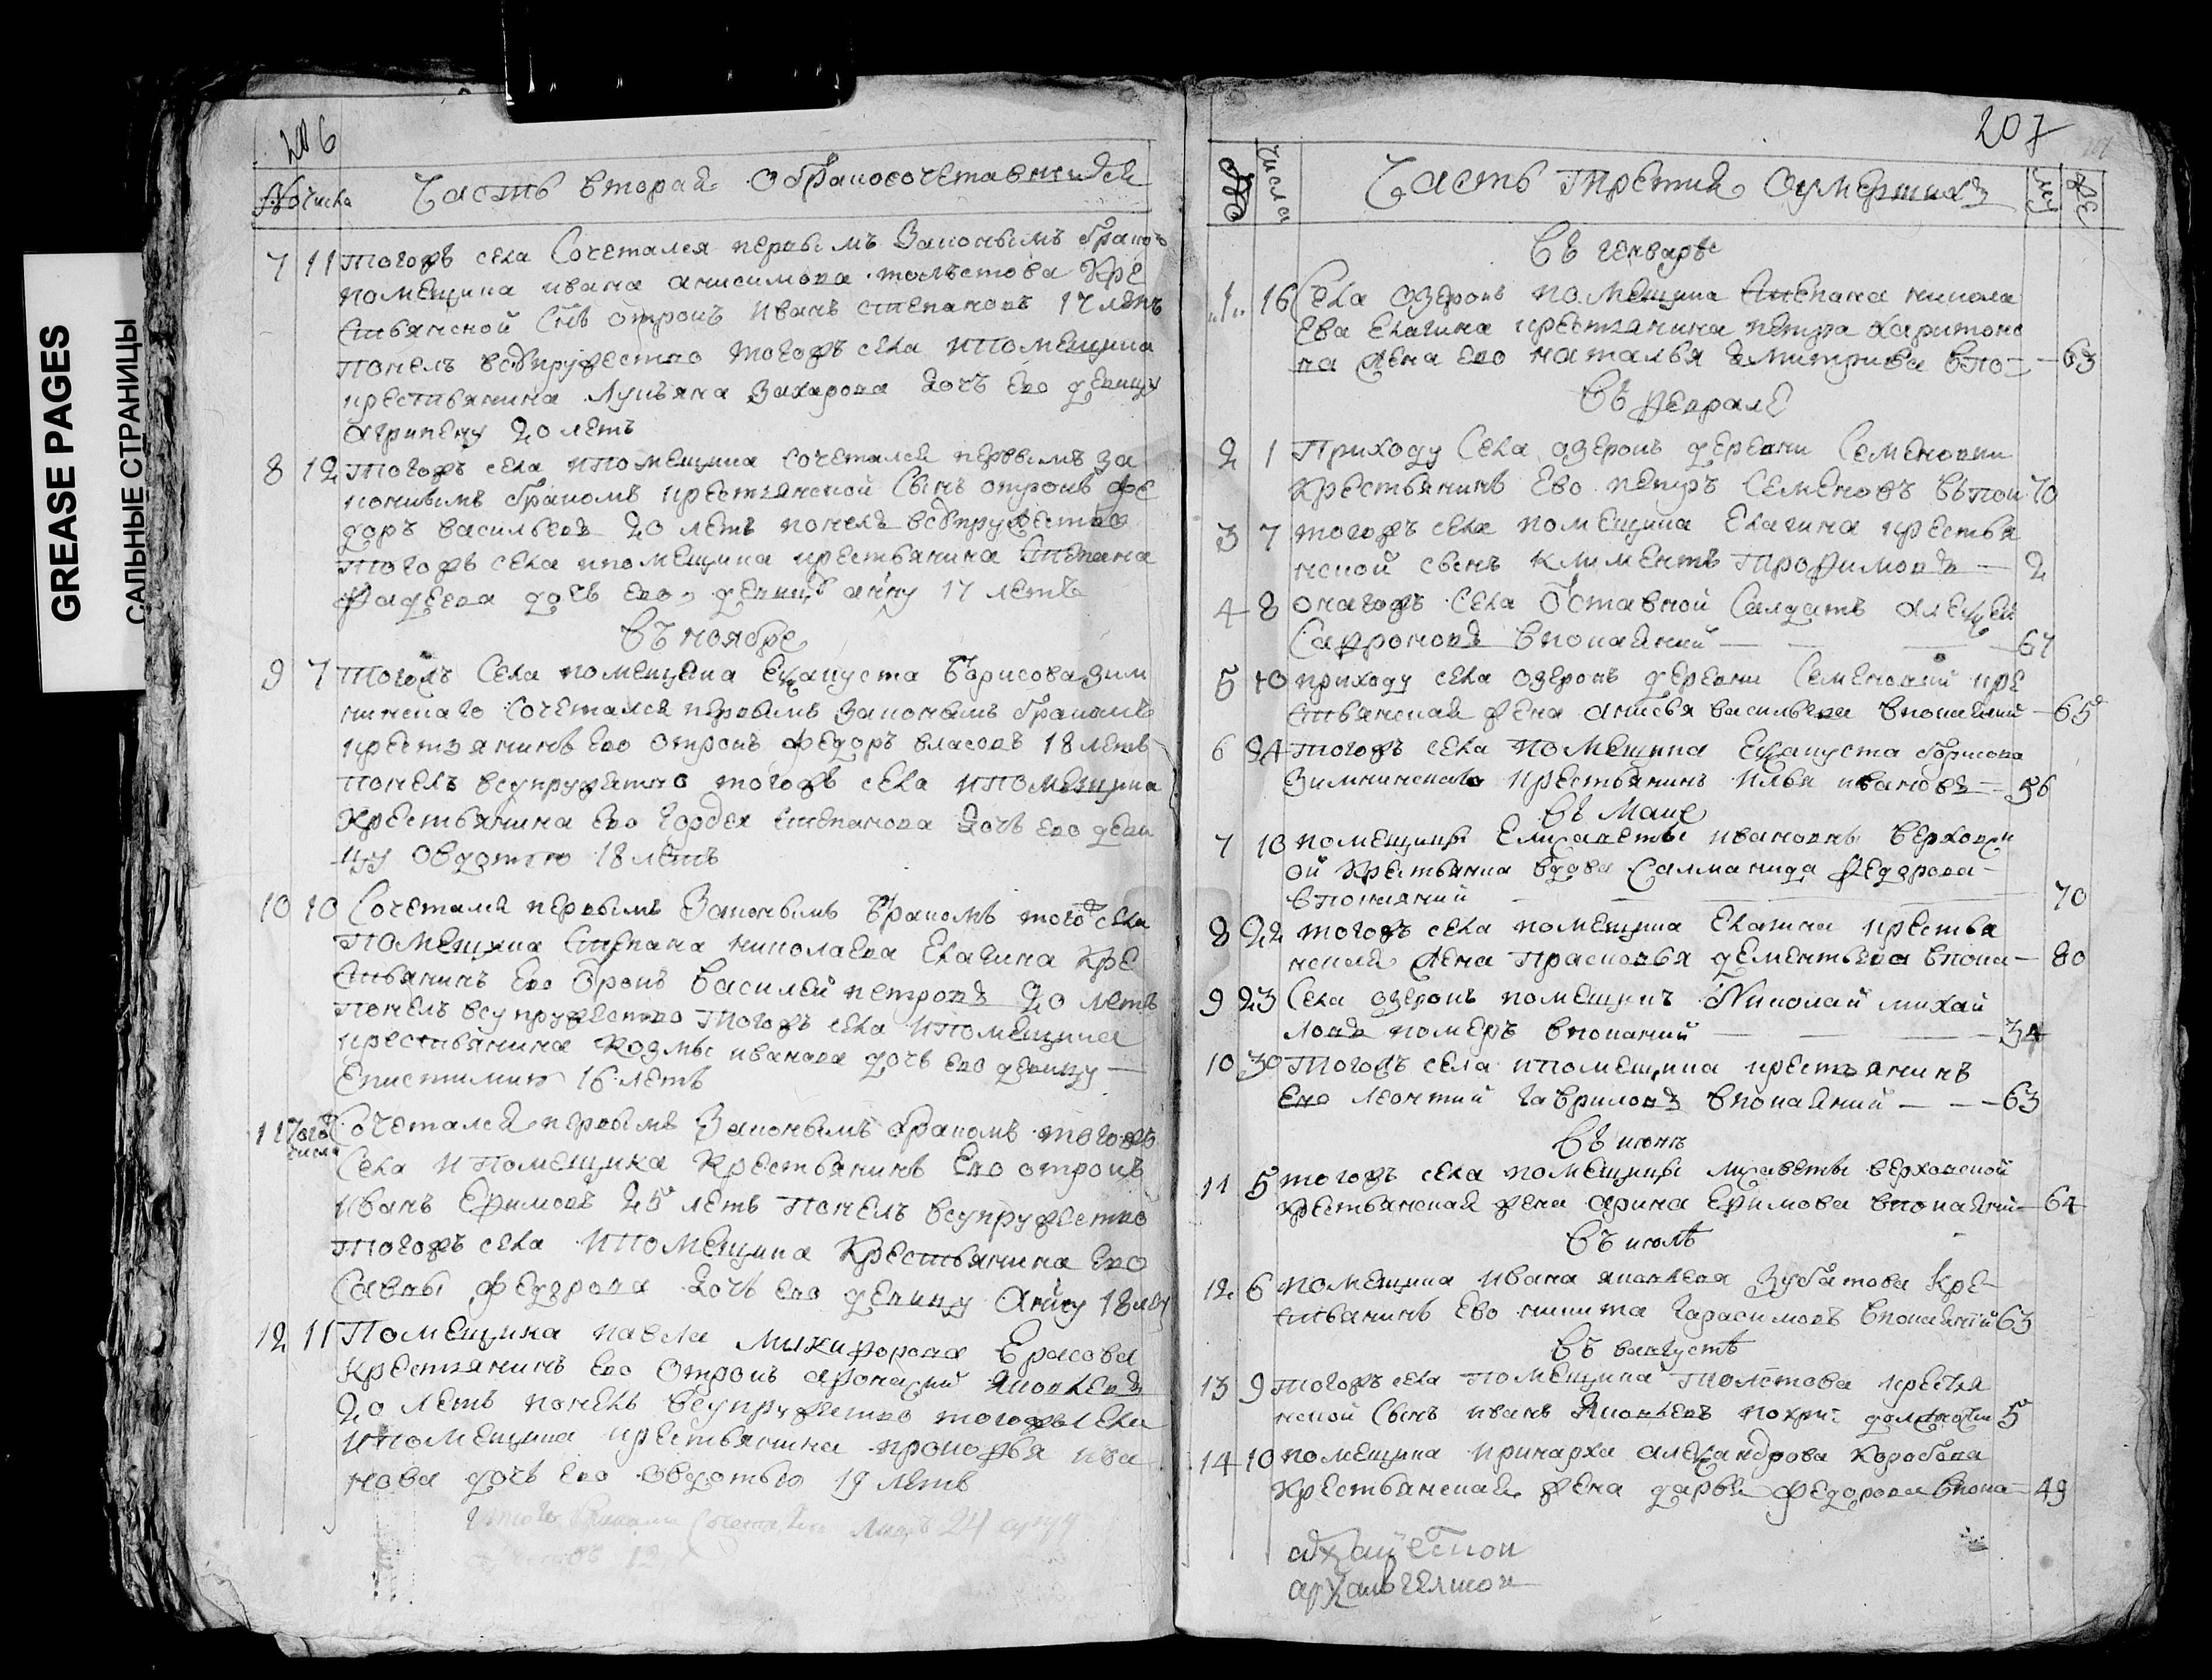 GREASE PAGES
САЛЬНЫЕ СТРАНИЦЫ
206
№ числа Часть вторая о бракосочетавшихся
7 11 тогожъ села Сочетался первымъ Законымъ бракомъ
помещика ивана анисимова толъстова Кре
стьянской Снъ отрокъ Иванъ степановъ 17 летъ
понелъ всупружество тогожъ села ипомещика
крестьянина Лукъяна Захарова дочъ ево девицу
агрипену 20 летъ
8 12 тогожъ села ипомещика сочетался первымъ за
конымъ бракомъ крестьянской Сынъ отрокъ фе
доръ васильевъ 20 летъ понелъ всупружество
тогожъ села ипомещика крестьянина Степана
фадеева дочъ ево девицу анну 17 летъ
Въ ноябре
9 7 тогожъ Села помещика Евдокуста борисова зим
нинскаго Сочетался первымъ законымъ бракомъ
крестьянинъ ево отрокъ федоръ власовъ 18 летъ
понелъ всупружатво тогожъ села ипомещика
Крестьянина ево гордея степанова дочъ ево деви
цу овдотью 18 летъ
10 10 Сочетался первымъ Законымъ бракомъ тогожъ села
помещика степана николаева Елагина Кре
стьянинъ ево Брокъ Василей петровъ 20 летъ
понелъ всупружество тогожъ села ипомещика
крестьянина козмы иванова дочъ ево девицу
Епистимию 16 летъ
11 Того числа Сочетался первымъ Законымъ бракомъ тогожъ
Села ипомещика Крестьянинъ Ево отрокъ
иванъ Ефимовъ 25 летъ понелъ всупружество
тогожъ села ипомещика Крестьянина ево
Савы федорова дочъ ево девицу анну 18 лет
12 11 Помещика павла микифорова Ерасова
Крестьянинъ ево отрокъ афонасий яковлевъ
20 летъ понелъ всупружество тогожъ села
ипомещика крестьянина прокофья ива
нова дочъ ево овдотью 19 летъ
24
12
207
№ числа Часть третия оумершихъ му же
Въ генваре
1 16 Села озерокъ помещика Степана никола
ева елагина крестьянина петра харитоно
ва жена ево наталья дмитриева впо 63
Въ феврале
2 1 Приходу Села озерокъ деревни Семеновки
Крестьянинъ ево петръ Семеновъ впок 70
3 7 тогожъ села помещика елагина крестья
нской сынъ климентъ трофимовъ 2
4 8 онагожъ Села отставной Салдатъ алексей
Сафроновъ впокаяний 67
5 10 приходу села озерокъ деревни Семеновки кре
стьянская жена анисья васильева впокаяний 65
6 24 тогожъ села помещика борисова
Зимнинскаго крестьянинъ илья ивановъ 56
Въ Маие
7 10 помещицы Елисаветы ивановны верховск
ой Крестьянка вдова Саламанида федорова
впокаяний 70
8 22 тогожъ села помещика Елагина крестья
нская жена прасковья дементьева впока 80
9 23 Села озерокъ помещикъ Николай михай
ловъ померъ впокаяний 34
10 30 Тогожъ села ипомещика крестьянинъ
ево леонтий гавриловъ впокаяний 63
Въ июне
11 5 тогожъ села помещицы лисаветы верховской
крестьянская жена арина Ефимова впокаяний 64
Въ июле
12 6 помещика ивана яковлева Зубатова Кре
стьянинъ Ево никита гарасимовъ впокаяний 63
Въ августе
13 9 тогожъ села помещика толстова крестья
нской Сынъ иванъ Яковлевъ 5
14 10 помещика иринарха александрова Коробова
Крестьянская жена дарья федорова впока 49